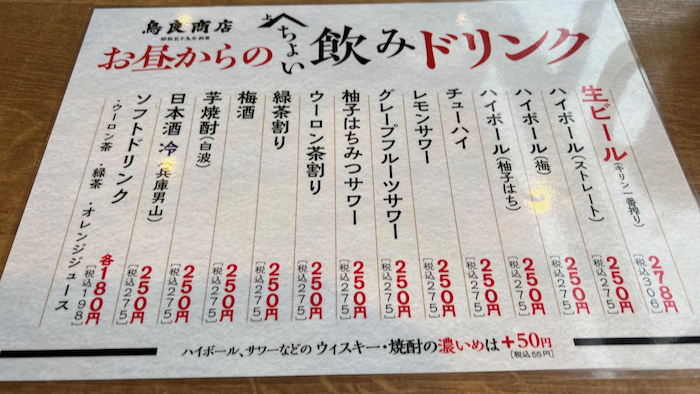 鳥良商店
昭和五十九年創業
お昼からのちょい飲みドリンク
生ビール(キリン一番搾り) 278円 [税込306]
ハイボール(ストレート) 250円 [税込275]
ハイボール(梅) 250円 [税込275]
ハイボール(柚子はち) 250円 [税込275]
チューハイ 250円 [税込275]
レモンサワー 250円 [税込275]
グレープフルーツサワー 250円 [税込275]
柚子はちみつサワー 250円 [税込275]
ウーロン茶割り 250円 [税込275]
緑茶割り 250円 [税込275]
梅酒 250円 [税込275]
芋焼酎(白波) 250円 [税込275]
日本酒 冷(兵庫男山) 250円 [税込275]
ソフトドリンク 250円 [税込275]
・ウーロン茶 ・緑茶 ・オレンジジュース 各180円 [税込198]
ハイボール、サワーなどの ウィスキー・焼酎の濃いめは +50円
[税込55円]